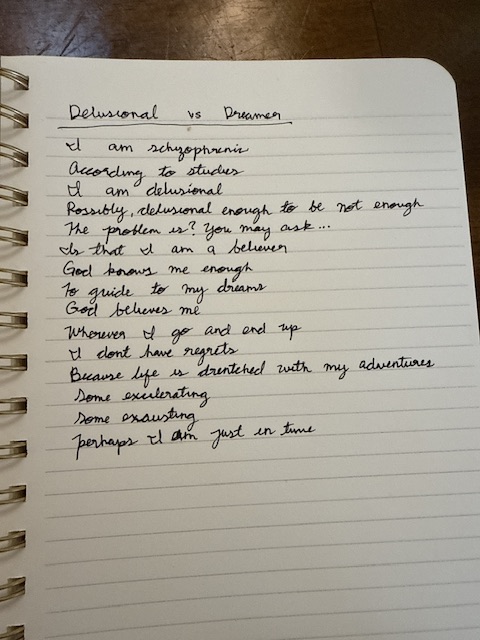 Delusional vs Dreamer
I am schizophrenic
According to studies
I am delusional
Possibly, delusional enough to be not enough
The problem is? You may ask...
Is that I am a believer
God knows me enough
To guide to my dreams
God believes me
Wherever I go and end up
I dont have regrets
Because life is drentched with my adventures
Some exculerating
Some exausting
perhaps I am just in time